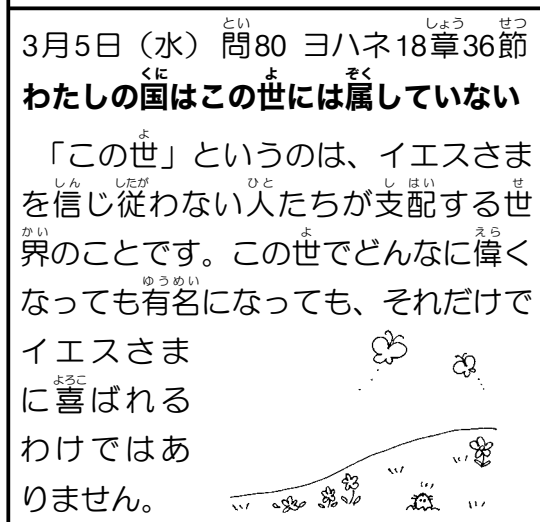 3月5日（水） 問80 ヨハネ18章36節
わたしの国はこの世には属していない
「この世」というのは、イエスさま
を信じ従わない人たちが支配する世
界のことです。この世でどんなに偉く
なっても有名になっても、それだけで
イエスさま
に喜ばれる
わけではあ
りません。